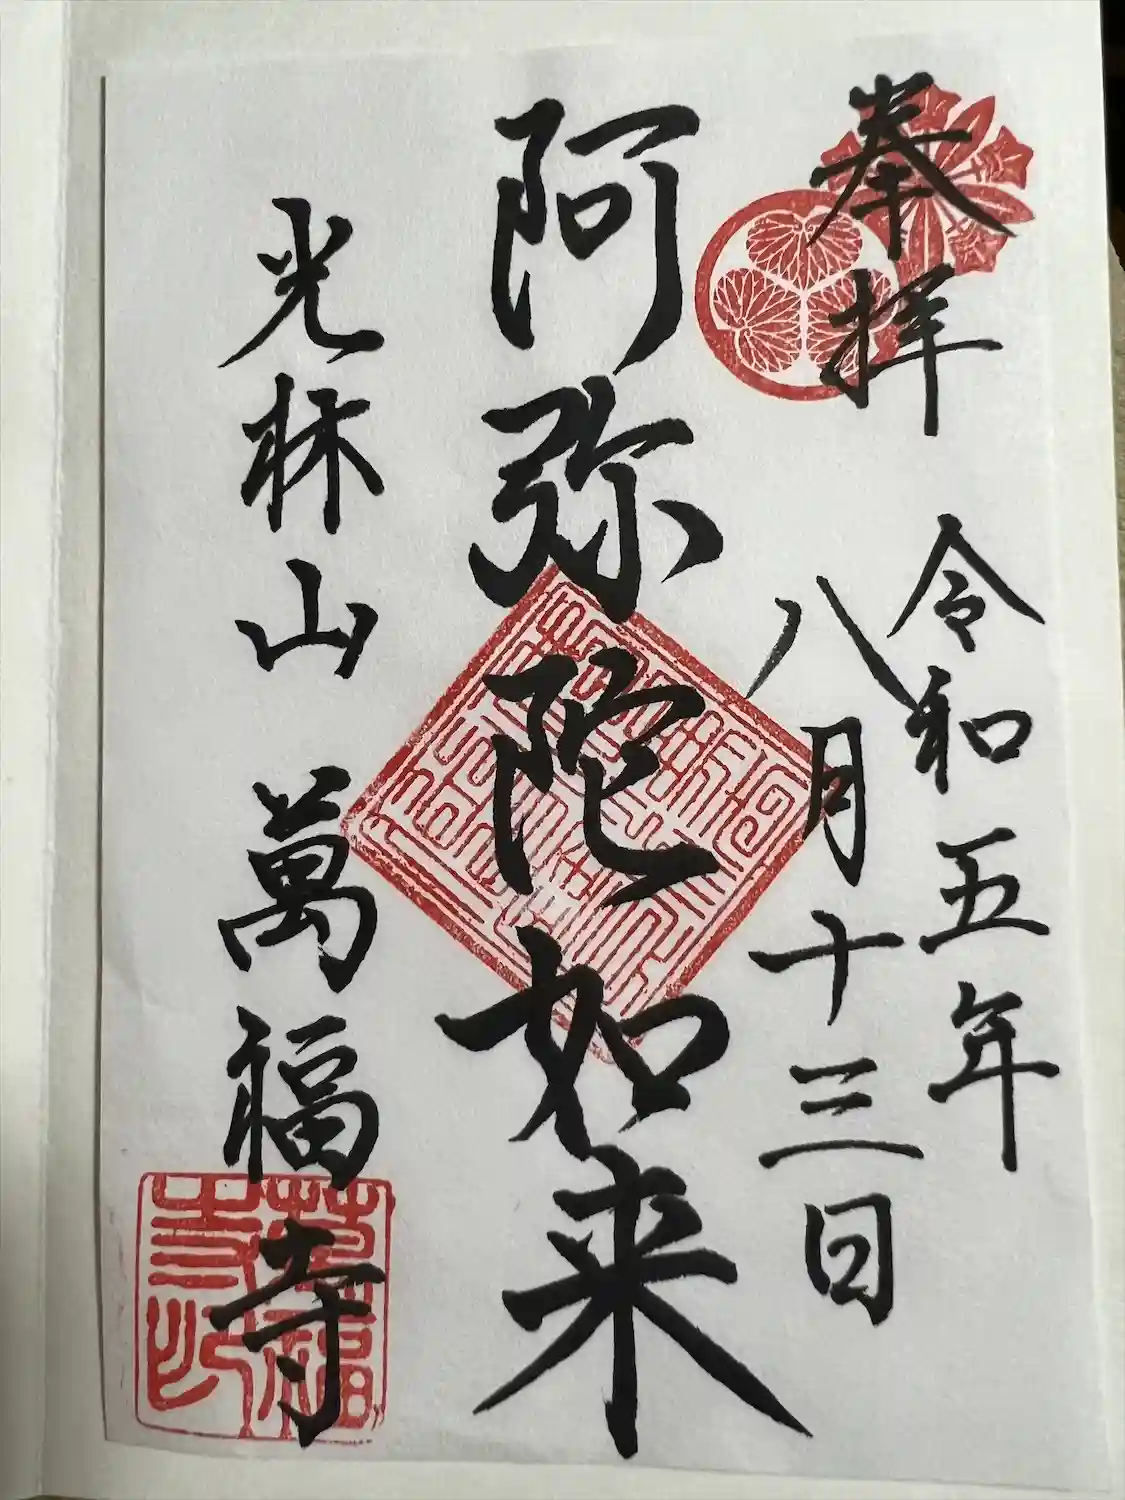 奉拝
令和五年
八月十三日
阿弥陀如来
光林山 萬福寺
萬福寺印